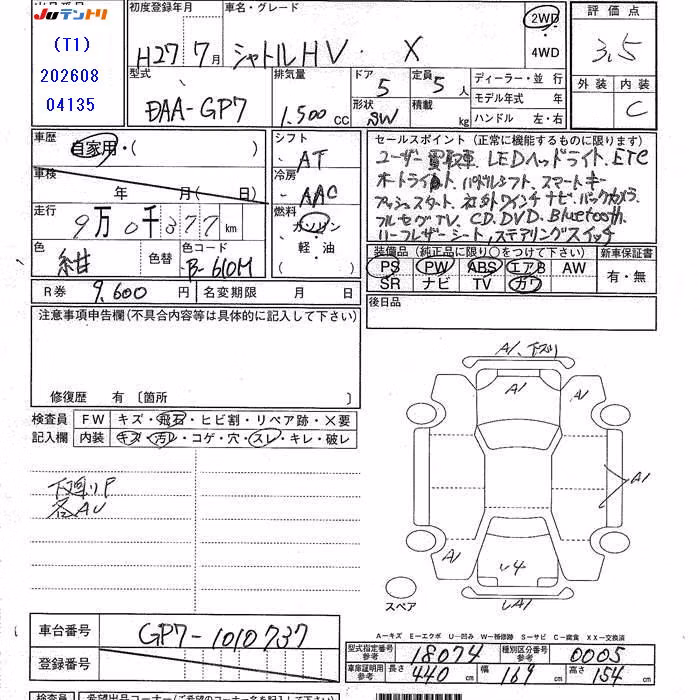 JUテントリ
(T1)
202608
04135
初度登録年月
H27 7月
車名・グレード
シャトルHV X
2WD
4WD
評価点
3.5
外装 内装
C
型式
DAA-GP7
排気量
1.500 cc
ドア
5
定員
5 人
形状
SW
積載
kg
ディーラー・並行
モデル年式 年
ハンドル 左・右
車歴
自家用・( )
車検
年 月( 日)
走行
9万0千377km
色
紺
色替
色コード
B-610M
シフト
AT
冷房
AAC
燃料
ガソリン
軽・油
( )
セールスポイント(正常に機能するものに限ります)
ユーザー買取車、LEDヘッドライト、ETC
オートライト、パドルシフト、スマートキー
プッシュスタート、社外9インチナビ、バックカメラ、
フルセグTV、CD、DVD、Bluetooth、
ハーフレザーシート、ステアリングスイッチ
装備品(純正品に限り○をつけて下さい)
PS PW ABS エアB AW
SR ナビ TV カワ
新車保証書
有・無
R券 9,600円 名変期限 月 日
後日品
注意事項申告欄(不具合内容等は具体的に記入して下さい)
修復歴 有〔箇所 〕
検査員
記入欄
FW キズ・飛石・ヒビ割・リペア跡・×要
内装 キズ・汚レ・コゲ・穴・スレ・キレ・破レ
下廻りP
各AU
A1、下スリ
A1
A1
A1
A1
U4
UA1
スペア
A-キズ E-エクボ U-凹み W-補修跡 S-サビ C-腐食 XX-交換済
車台番号 GP7-1010737
登録番号
型式指定番号
参考
18074
種別区分番号
参考
0005
車庫証明用
参考
長さ 440 cm 幅 169 cm 高さ 154 cm
検査員 希望出品コーナー(ご希望のコーナー名を記入して下さい)